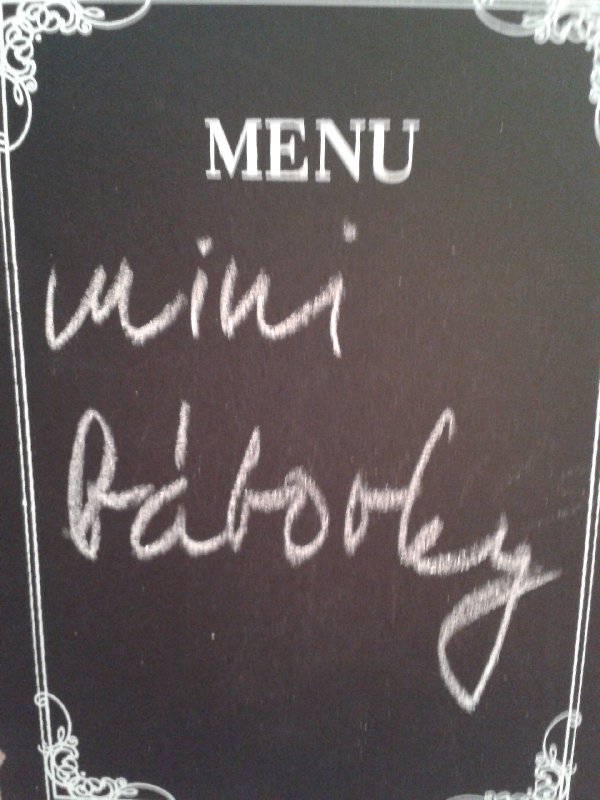 MENU
mini
bábovky